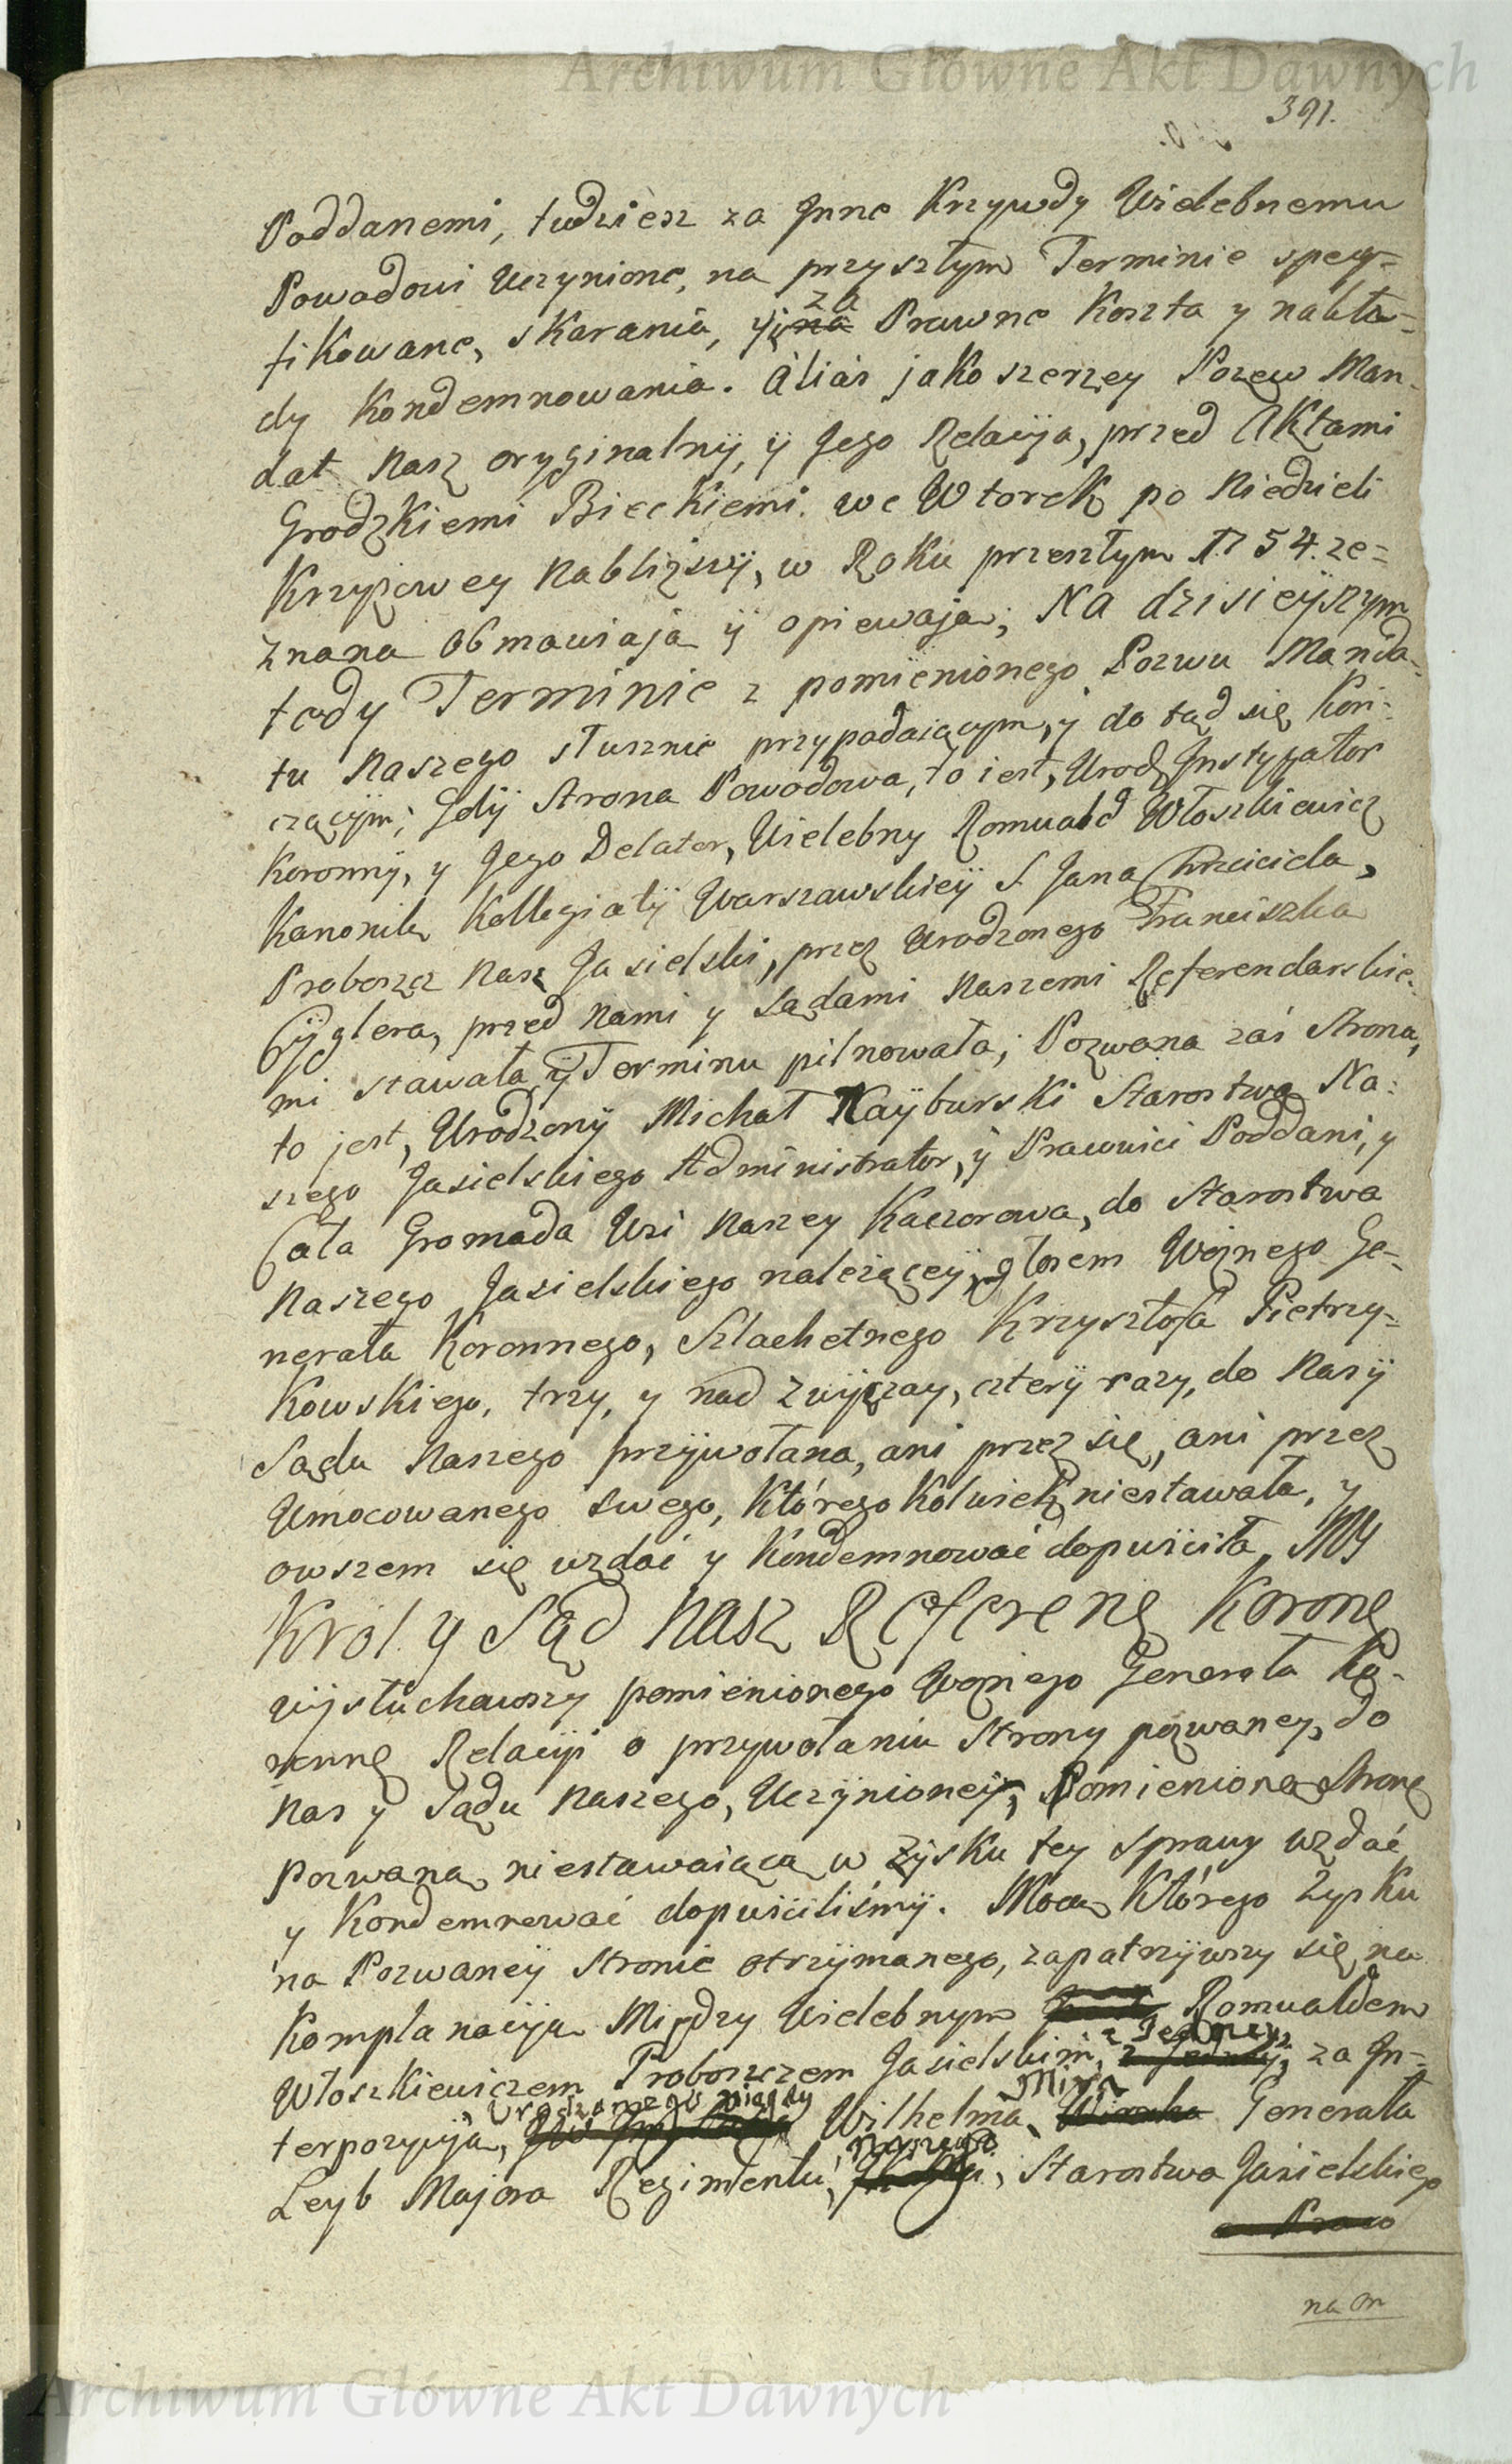 Archiwum Główne Akt Dawnych
391.
Poddanemi, tudziesz za Jnne Krzywdy Wielebnemu
Powodowi Uczynione, na przyszłym Terminie specy=
fikowane, skarania, y za Prawne Koszta y nakła=
dy Kondemnowania. Alias jako szerzey Pozew Man=
dat Nasz oryginalny, ÿ Jego Relacyja, przed Aktami
Grodzkiemi Bieckiemi we Wtorek po Niedzieli
Krzyżowey Nabliższÿ, w Roku przeszłym 1754. ze=
znana obmawiaja ÿ opiewaja; Na dzisieÿszym
tedy Terminie z pomienionego Pozwu Manda=
tu Naszego słusznie przypadaiącym, y do tąd się Koń=
czącÿm; Gdÿ Strona Powodowa, to iest, Urodz Jnstygator
Koronnÿ, y Jego Delator, Wielebny Romuald Włoszkiewicz
Kanonik Kollegiatÿ Warszawskieÿ S. Jana Chrzciciela,
Proboszcz Nasz Jasielski, przez Urodzonego Franciszka
Cÿglera, przed Nami y Sądami Naszemi Referendarskie=
mi stawała ÿ Terminu pilnowała; Pozwana zaś Strona,
to jest, Urodzonÿ Michał Kaÿburski Starostwa Na=
szego Jasielskiego Administrator, ÿ Prawnici Poddani, y
Cała Gromada Wsi Naszey Kaczorowa, do Starostwa
Naszego Jasielskiego należąceÿ, głosem Woznego Ge=
nerała Koronnego, Szlachetnego Krzysztofa Pietrzy=
Kowskiego, trzy, y nad zwÿczay, czterÿ razy, do Nas ÿ
Sądu Naszego przÿwołana, ani przez się, ani przez
Umocowanego swego, Którego Kolwiek niestawała, y
owszem się wzdać y Kondemnować dopuściła, MY
Krol y Sąd Nasz Referenę Koronę
wÿsłuchawszy pomienionego Woznego Generała Ko=
ronnę Relacÿi o przywołaniu Strony pozwaney, do
Nas y Sądu Naszego, Uczÿnioneÿ, Pomieniona Stronę
Pozwaną niestawaiącą w Zÿsku tey sprawy wzdać
y Kondemnować dopuściliśmÿ. Mocą Którego Zysku
na Pozwaneÿ Stronie otrzÿmanego, zapatrzÿwszy się na
Komplanacÿją Między Wielebnym Romualdem
z Jedneÿ
Włoszkiewiczem Proboszczem Jasielskim, z Jedneÿ, za Jn=
Urodzonego niegdy Mira
terpozycyją, Wilhelma, Generała
Naszego
Leyb Majora Regimentu, Starostwa Jasielskiego
Prawo
Archiwum Główne Akt Dawnych